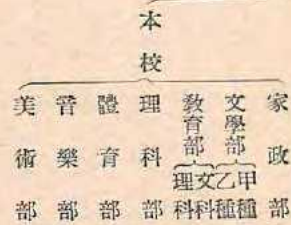 本校
家政部
文學部
甲種
乙種
教育部
文科
理科
理科部
體育部
音樂部
美術部